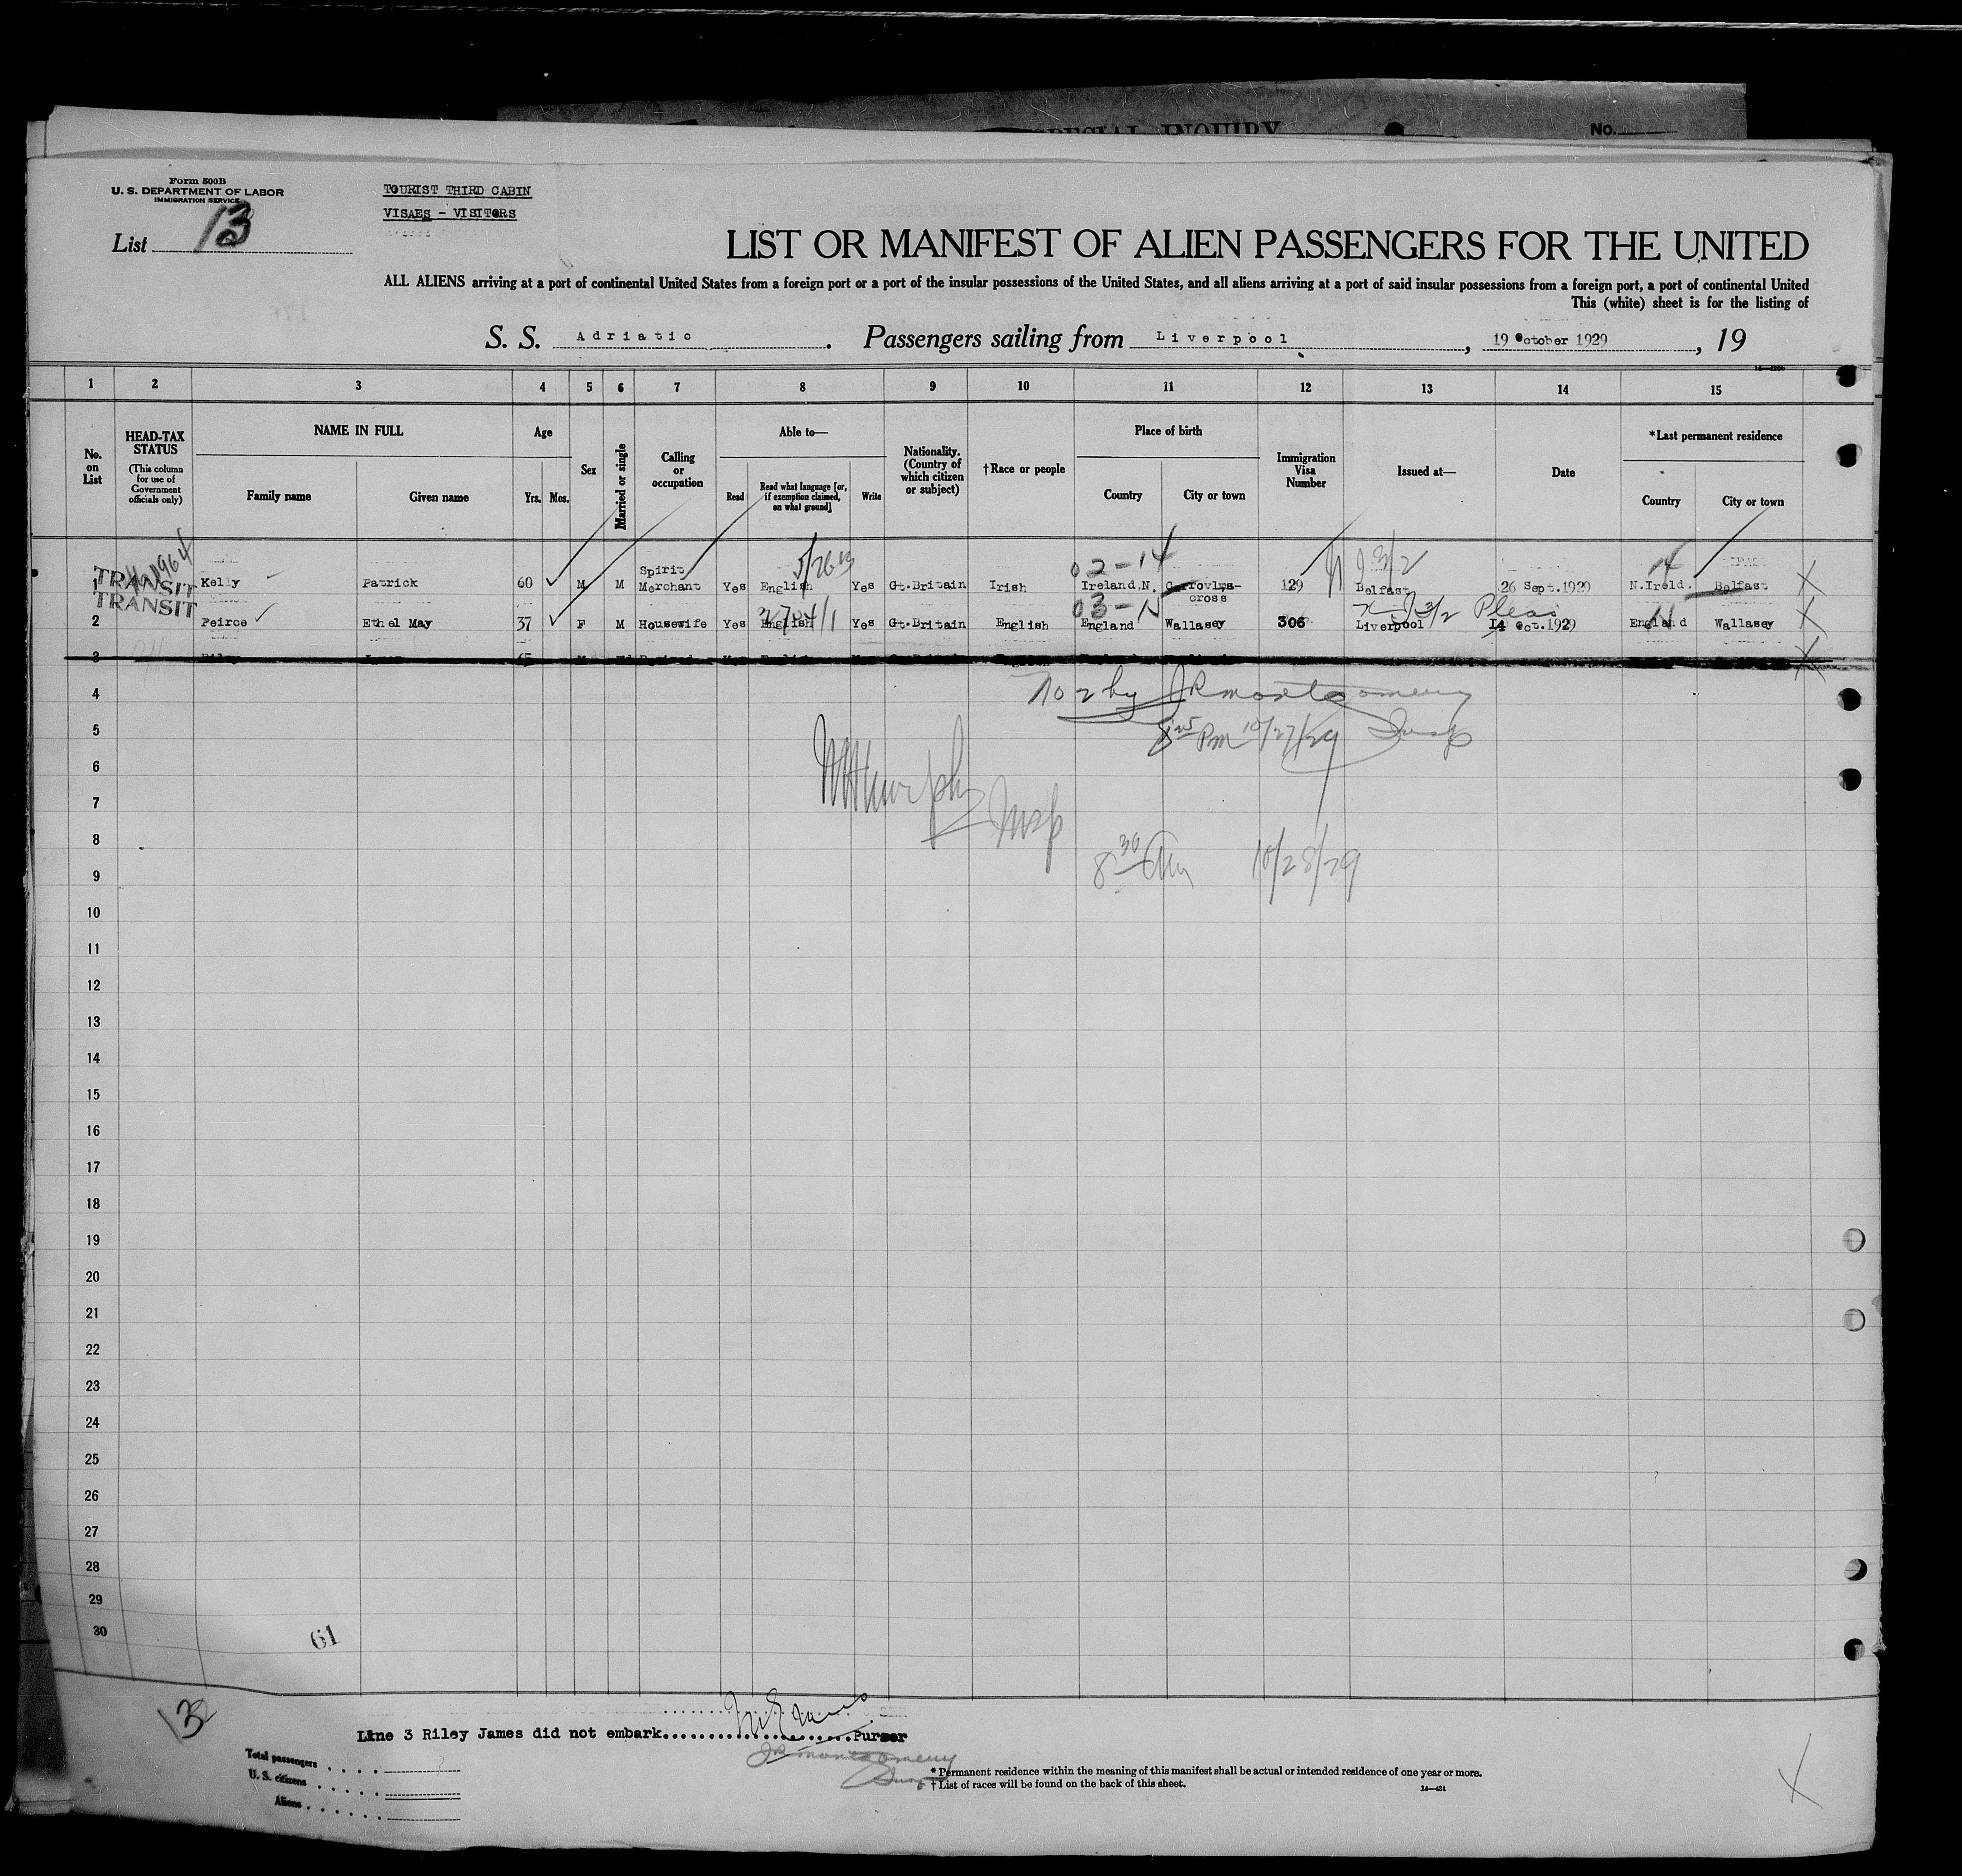 SPECIAL INQUIRY
No.
Form 500B
U. S. DEPARTMENT OF LABOR
IMMIGRATION SERVICE
List 13
TOURIST THIRD CABIN
VISAES - VISITORS
LIST OR MANIFEST OF ALIEN PASSENGERS FOR THE UNITED
ALL ALIENS arriving at a port of continental United States from a foreign port or a port of the insular possessions of the United States, and all aliens arriving at a port of said insular possessions from a foreign port, a port of continental United
This (white) sheet is for the listing of
S. S. Adriatic. Passengers sailing from Liverpool, 19 October 1929, 19
1 2 3 4 5 6 7 8 9 10 11 12 13 14 15
No. on List
HEAD-TAX STATUS (This column for use of Government officials only)
NAME IN FULL
Family name Given name
Age
Yrs. Mos.
Sex
Married or single
Calling or occupation
Able to—
Read Read what language [or, if exemption claimed, on what ground] Write
Nationality. (Country of which citizen or subject)
†Race or people
Place of birth
Country City or town
Immigration Visa Number
Issued at—
Date
*Last permanent residence
Country City or town
5/26 02-14 3/2
TRANSIT 1 Kelly Patrick 60 M M Spirit Merchant Yes English Yes Gt.Britain Irish Ireland,N. cross 129 Belfast 26 Sept.1929 N.Ireld. Belfast X
TRANSIT
03-N 3/2
2 Peirce Ethel May 37 F M Housewife Yes English Yes Gt.Britain English England Wallasey 306 Liverpool 14 Oct.1929 England Wallasey X
3 Riley James 65
4
No 2 by JR Montgomery
5
8 25 Pm 10/27/29 Insp
6
7
Murphy Insp
8
8 30 Am 10/28/29
9
10
11
12
13
14
15
16
17
18
19
20
21
22
23
24
25
26
27
28
29
30
61
13
Line 3 Riley James did not embark....................Purser
JR Montgomery
Insp
Total passengers
U. S. citizens
Aliens
* Permanent residence within the meaning of this manifest shall be actual or intended residence of one year or more.
† List of races will be found on the back of this sheet.
14—431
X